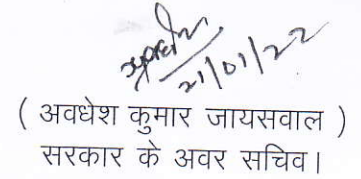 21/01/22
( अवधेश कुमार जायसवाल )
सरकार के अवर सचिव।